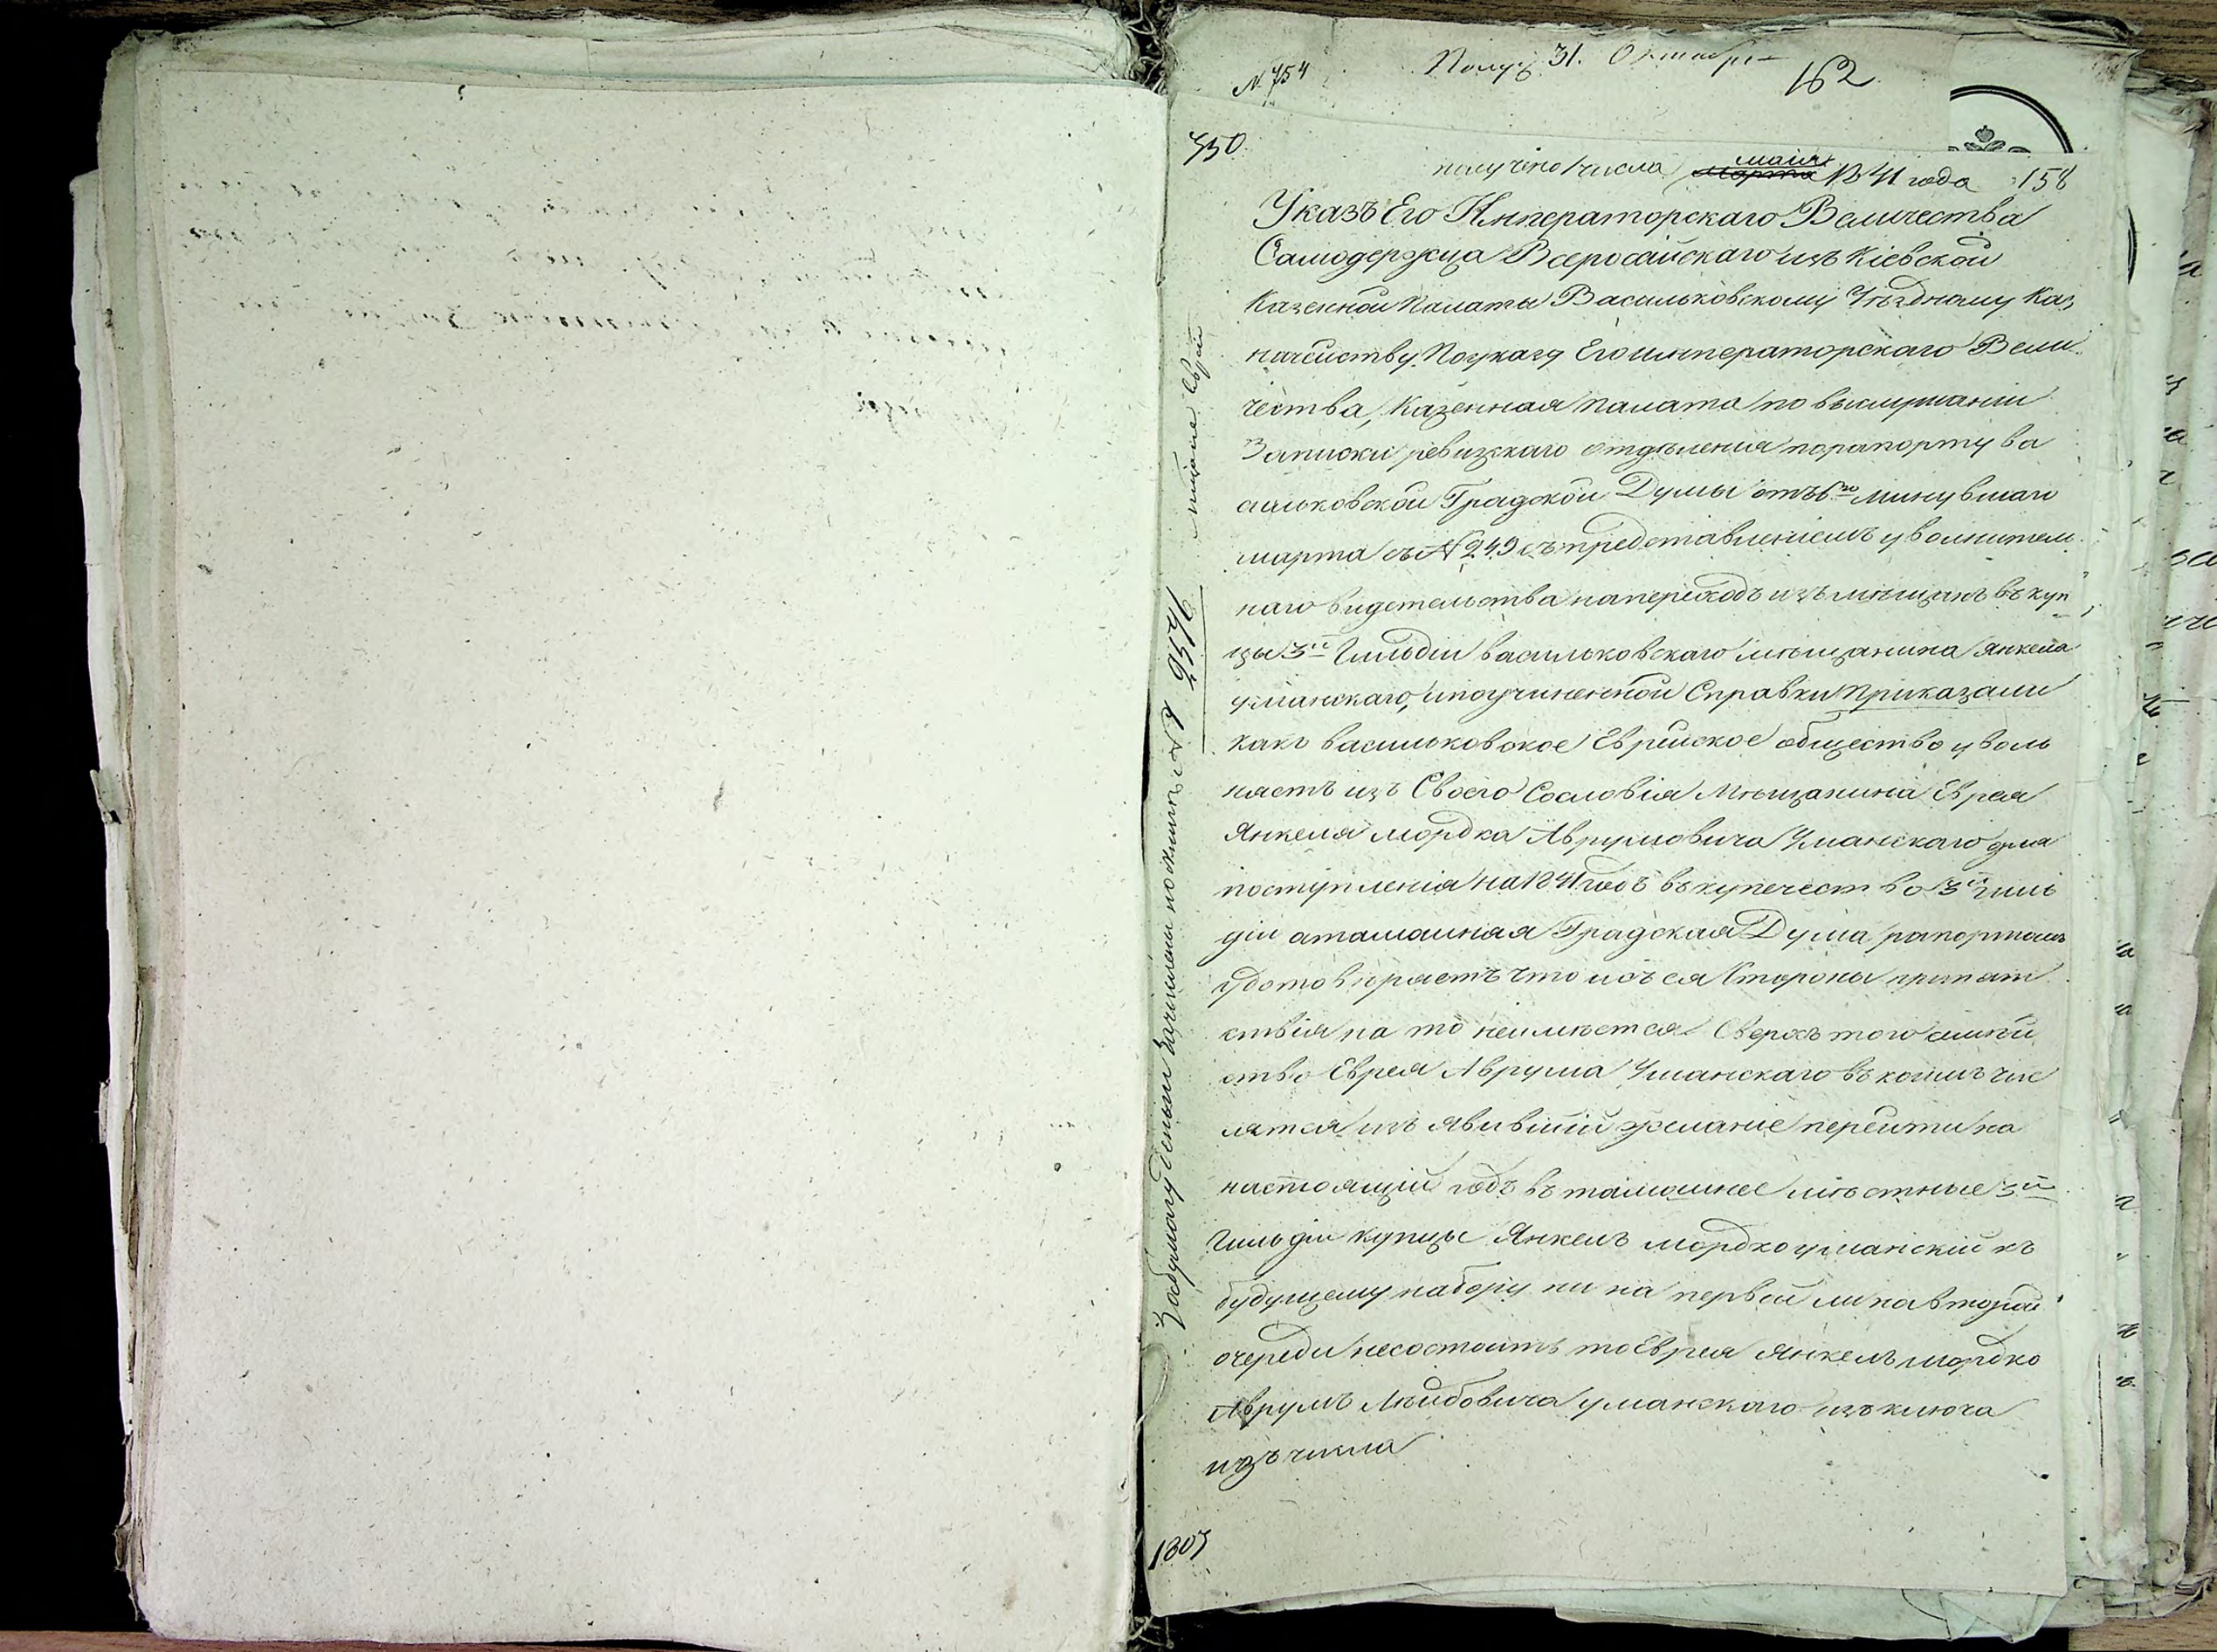 № 754 Получ 31. Октября
162
350
получено числа марта маия 1841 года 158
Указъ Его Императорскаго Величества
Самодержца Всеросийскаго изъ Кіевской
Казенной Палаты Васильковскому Уѣздному Каз
начейству По указу Его императорскаго Вели
чества, Казенная палата по выслушаніи
Записки ревизскаго отдѣления по рапорту ва
сильковской Градской Думы отъ 6го минувшаго
марта съ № 249 съ представлениемъ увольнитель
наго видетельства на переходъ изъ мѣщанъ въ куп
цы 3й Гильдіи васильковскаго мѣщанина Янкеля
уманскаго, и по учиненной Справки Приказали
какъ васильковское Еврейское общество уволь
няетъ изъ Своего Сословія Мѣщанина Еврея
Янкеля мордка Аврумовича Уманскаго для
поступленія на 1841 годъ въ купечество 3й гиль
діи а тамошная Градская Дума рапортомъ
удостовѣряетъ что и съ ея Стороны препят
ствія на то неимѣется Сверхъ того семей
ство Еврея Аврума Уманскаго въ коемъ чис
лятся изъявившій желаніе перейти на
настоящій годъ въ тамошнее мѣстные 3й
Гильдіи купцы Янкель мордко уманскій къ
будущему набору ни на первой ни на второй
очереди несостоитъ то Еврея Янкель мордко
Аврумъ Лейбовича уманскаго изъключа
изъ числа
1803
За бумагу деньги зачислены по книгѣ № 2576
мѣщане Еврей